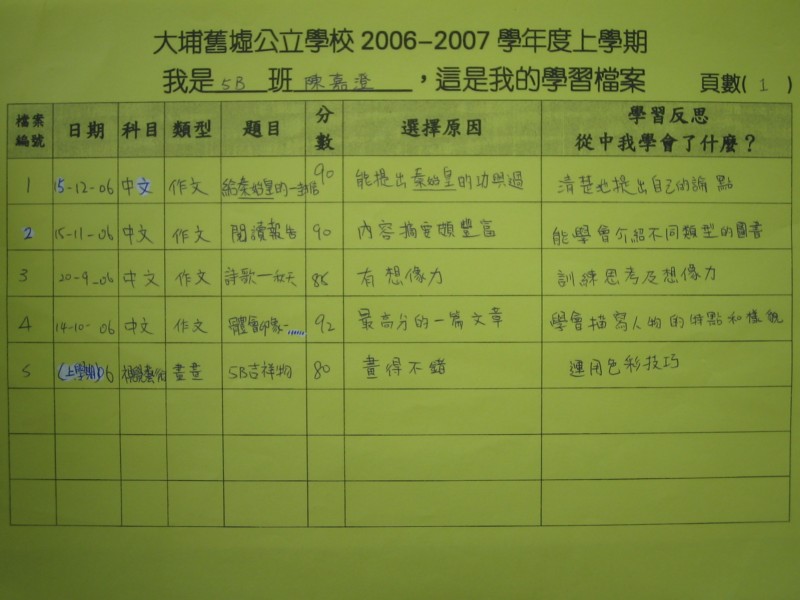 大埔舊墟公立學校 2006-2007 學年度上學期
我是 5B 班 陳嘉澄 ，這是我的學習檔案 頁數( 1 )
檔案編號 日期 科目 類型 題目 分數 選擇原因 學習反思 從中我學會了什麼？
1 15-12-06 中文 作文 給秦始皇的一封信 90 能提出秦始皇的功與過 清楚地提出自己的論點
2 15-11-06 中文 作文 閱讀報告 90 內容摘要頗豐富 能學會介紹不同類型的圖書
3 20-9-06 中文 作文 詩歌一 天 86 有想像力 訓練思考及想像力
4 14-10-06 中文 作文 體會印象- 92 最高分的一篇文章 學會描寫人物的特點和樣貌
5 (上學期)06 視覺藝術 畫畫 5B吉祥物 80 畫得不錯 運用色彩技巧